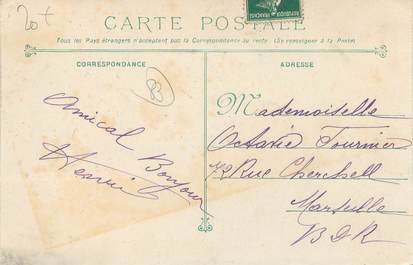 20+
CARTE POSTALE
Tous les Pays étrangers n'acceptent pas la Correspondance au recto. (Se renseigner à la Poste)
CORRESPONDANCE
ADRESSE
83
Amical Bonjour
Henri
Mademoiselle
Octavie Fournier
72 Rue Cherchell
Marseille
B D R